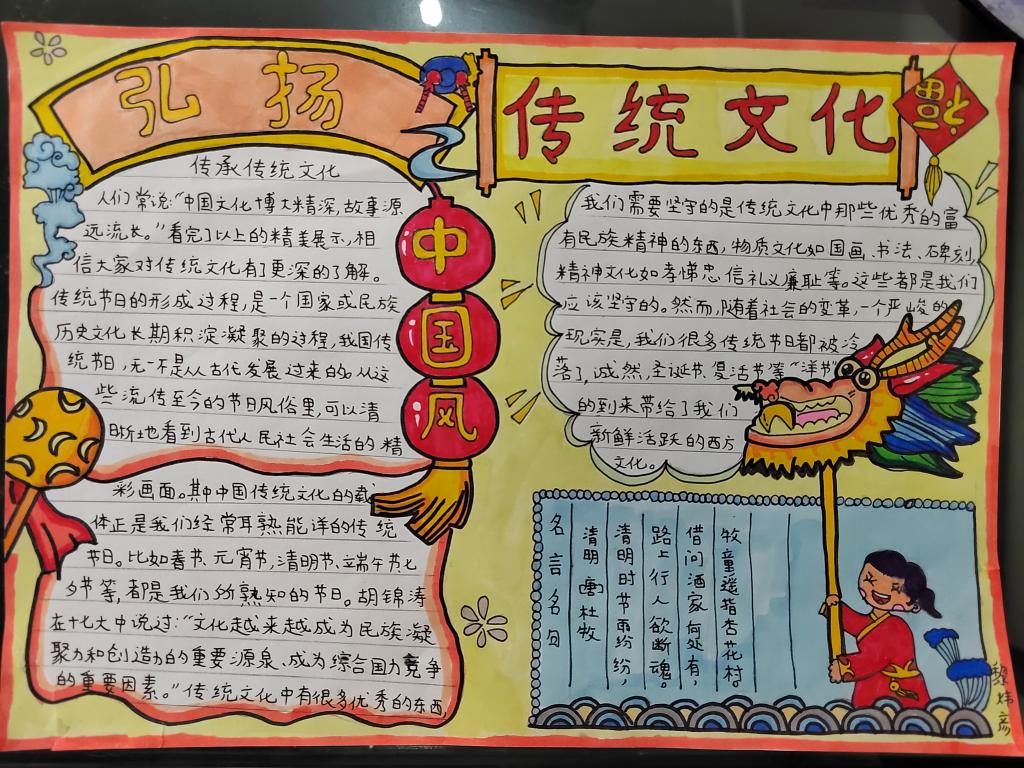 弘扬
传统文化
福
传承传统文化
人们常说:“中国文化博大精深,故事源
远流长。”看完了以上的精美展示,相
信大家对传统文化有了更深的了解。
传统节日的形成过程,是一个国家或民族
历史文化长期积淀凝聚的过程,我国传
统节日,无一不是从古代发展过来的。从这
些流传至今的节日风俗里,可以清
晰地看到古代人民社会生活的精
彩画面。其中中国传统文化的载
体正是我们经常耳熟能详的传统
节日。比如春节、元宵节,清明节、端午节、七
夕节等,都是我们所熟知的节日。胡锦涛
在十七大中说过:“文化越来越成为民族凝
聚力和创造力的重要源泉、成为综合国力竞争
的重要因素。”传统文化中有很多优秀的东西,
中国风
我们需要坚守的是传统文化中那些优秀的富
有民族精神的东西,物质文化如国画、书法、碑刻,
精神文化如孝悌忠、信礼义廉耻等。这些都是我们
应该坚守的。然而,随着社会的变革,一个严峻的
现实是,我们很多传统节日都被冷
落了,诚然,圣诞节、复活节等“洋节”
的到来带给了我们
新鲜活跃的西方
文化。
名言名句
清明 唐 杜牧
清明时节雨纷纷,
路上行人欲断魂。
借问酒家何处有,
牧童遥指杏花村。
黎炜彦